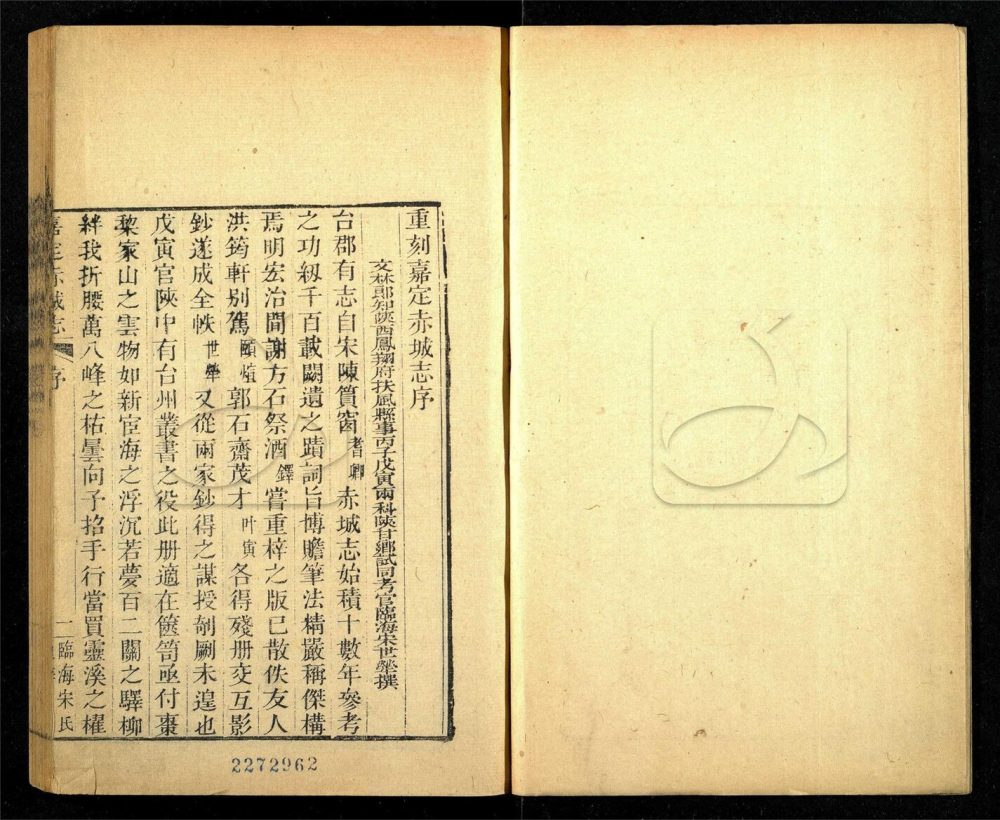 重刻嘉定赤城志序
文林郎知陝西鳳翔府扶風縣事丙子戊寅兩科陝甘鄉試同考官臨海宋世犖撰
台郡有志自宋陳篔窗耆卿赤城志始積十數年參考
之功級千百載闕遺之蹟詞旨博贍筆法精嚴稱傑構
焉明宏治間謝方石祭酒鐸嘗重梓之版已散佚友人
洪筠軒別駕頤煊郭石齋茂才叶寅各得殘册交互影
鈔遂成全帙世犖又從兩家鈔得之謀授剞劂未遑也
戊寅官陝中有台州叢書之役此册適在篋笥亟付棗
棃家山之雲物如新宦海之浮沉若夢百二關之驛柳
絆我折腰萬八峰之枯曇向予招手行當買靈溪之櫂
嘉定赤城志 序 一 臨海宋氏
2272962